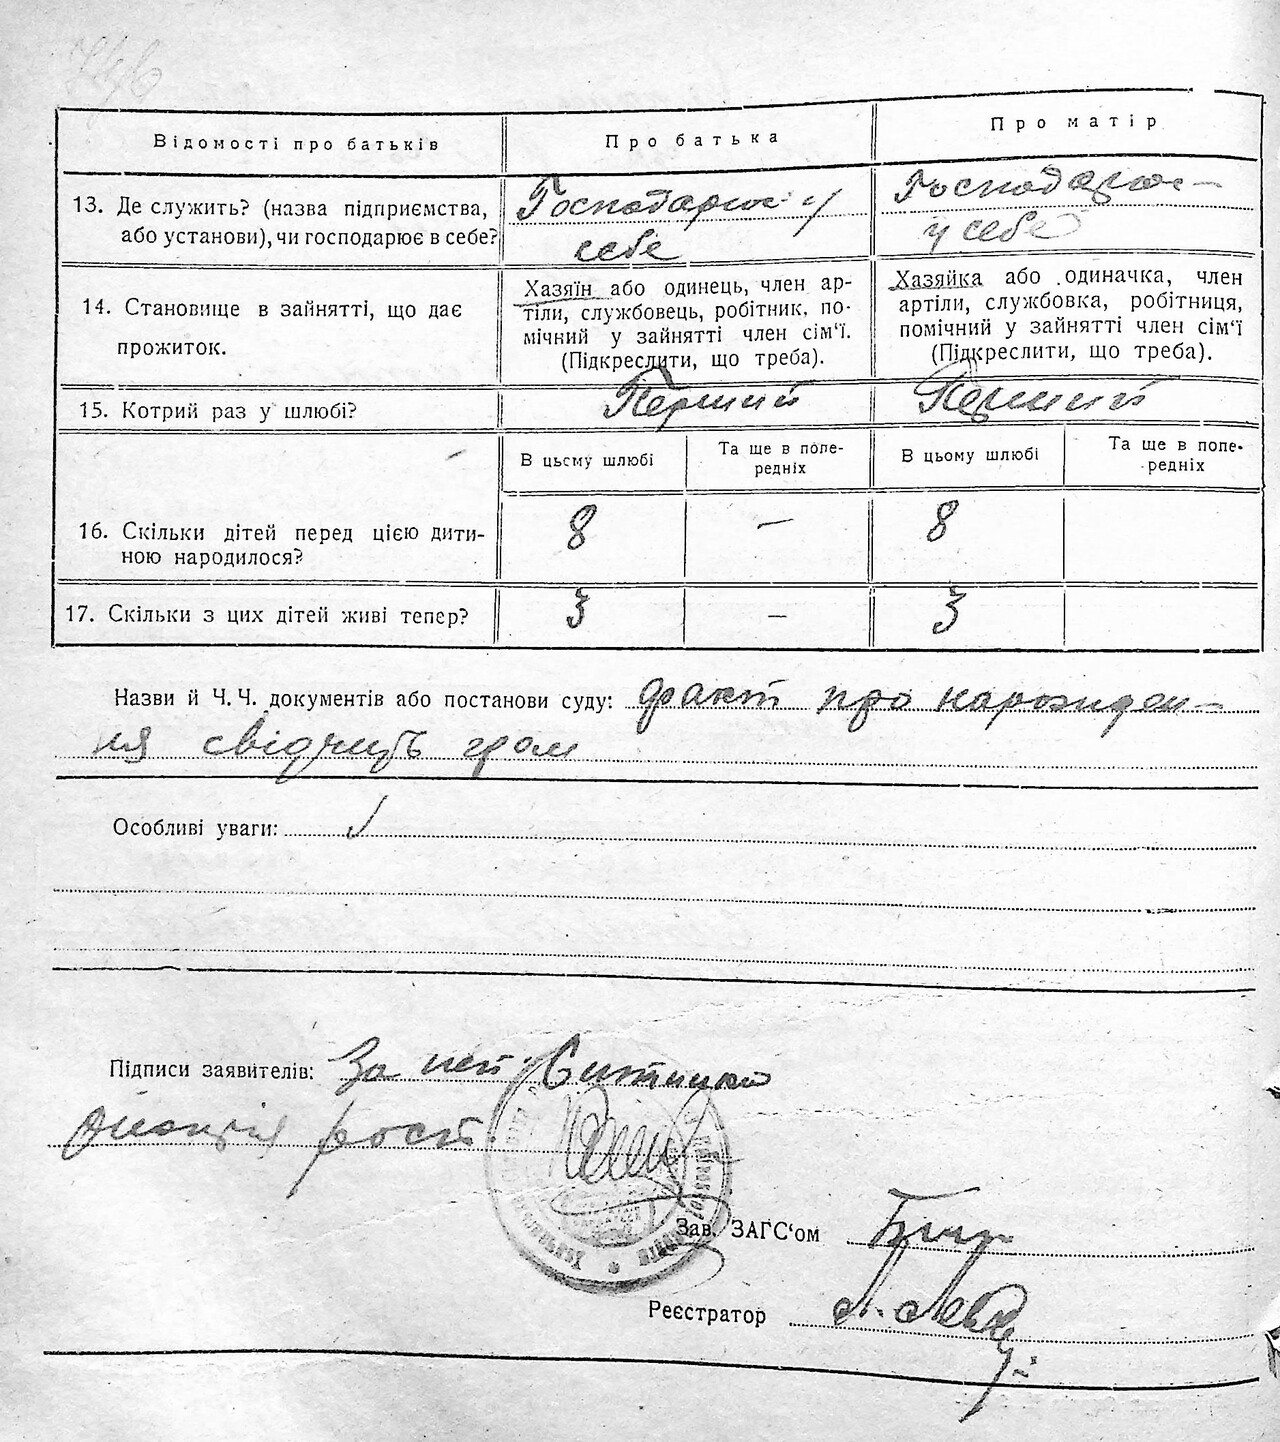 Відомості про батьків
Про батька
Про матір
13. Де служить? (назва підприємства,
або установи), чи господарює в себе?
Господарює у
себе
Господарює
у себе
14. Становище в зайнятті, що дає
прожиток.
Хазяїн або одинець, член ар-
тіли, службовець, робітник, по-
мічний у зайнятті член сім‘ї.
(Підкреслити, що треба).
Хазяйка або одиначка, член
артіли, службовка, робітниця,
помічний у зайнятті член сім‘ї
(Підкреслити, що треба).
15. Котрий раз у шлюбі?
Перший
Перший
В цьому шлюбі
Та ще в попе-
редніх
В цьому шлюбі
Та ще в попе-
редніх
16. Скільки дітей перед цією дити-
ною народилося?
8
—
8
17. Скільки з цих дітей живі тепер?
3
—
3
Назви й Ч. Ч. документів або постанови суду: факт про народжен-
ня свідчить гром
Особливі уваги:
Підписи заявителів: За неп
рост.
Зав. ЗАГС‘ом
Реєстратор